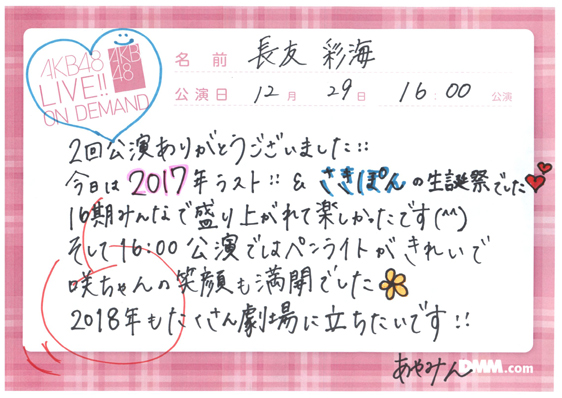 AKB48
LIVE!!
ON DEMAND
AKB
48
名前 長友 彩海
公演日 12月 29日 16:00 公演
2回公演ありがとうございました!!
今日は2017年ラスト!! & さきぽんの生誕祭でした
16期みんなで盛り上がれて楽しかったです(^^)
そして16:00公演ではペンライトがきれいで
咲ちゃんの笑顔も満開でした
2018年もたくさん劇場に立ちたいです!!
あやみん
DMM.com